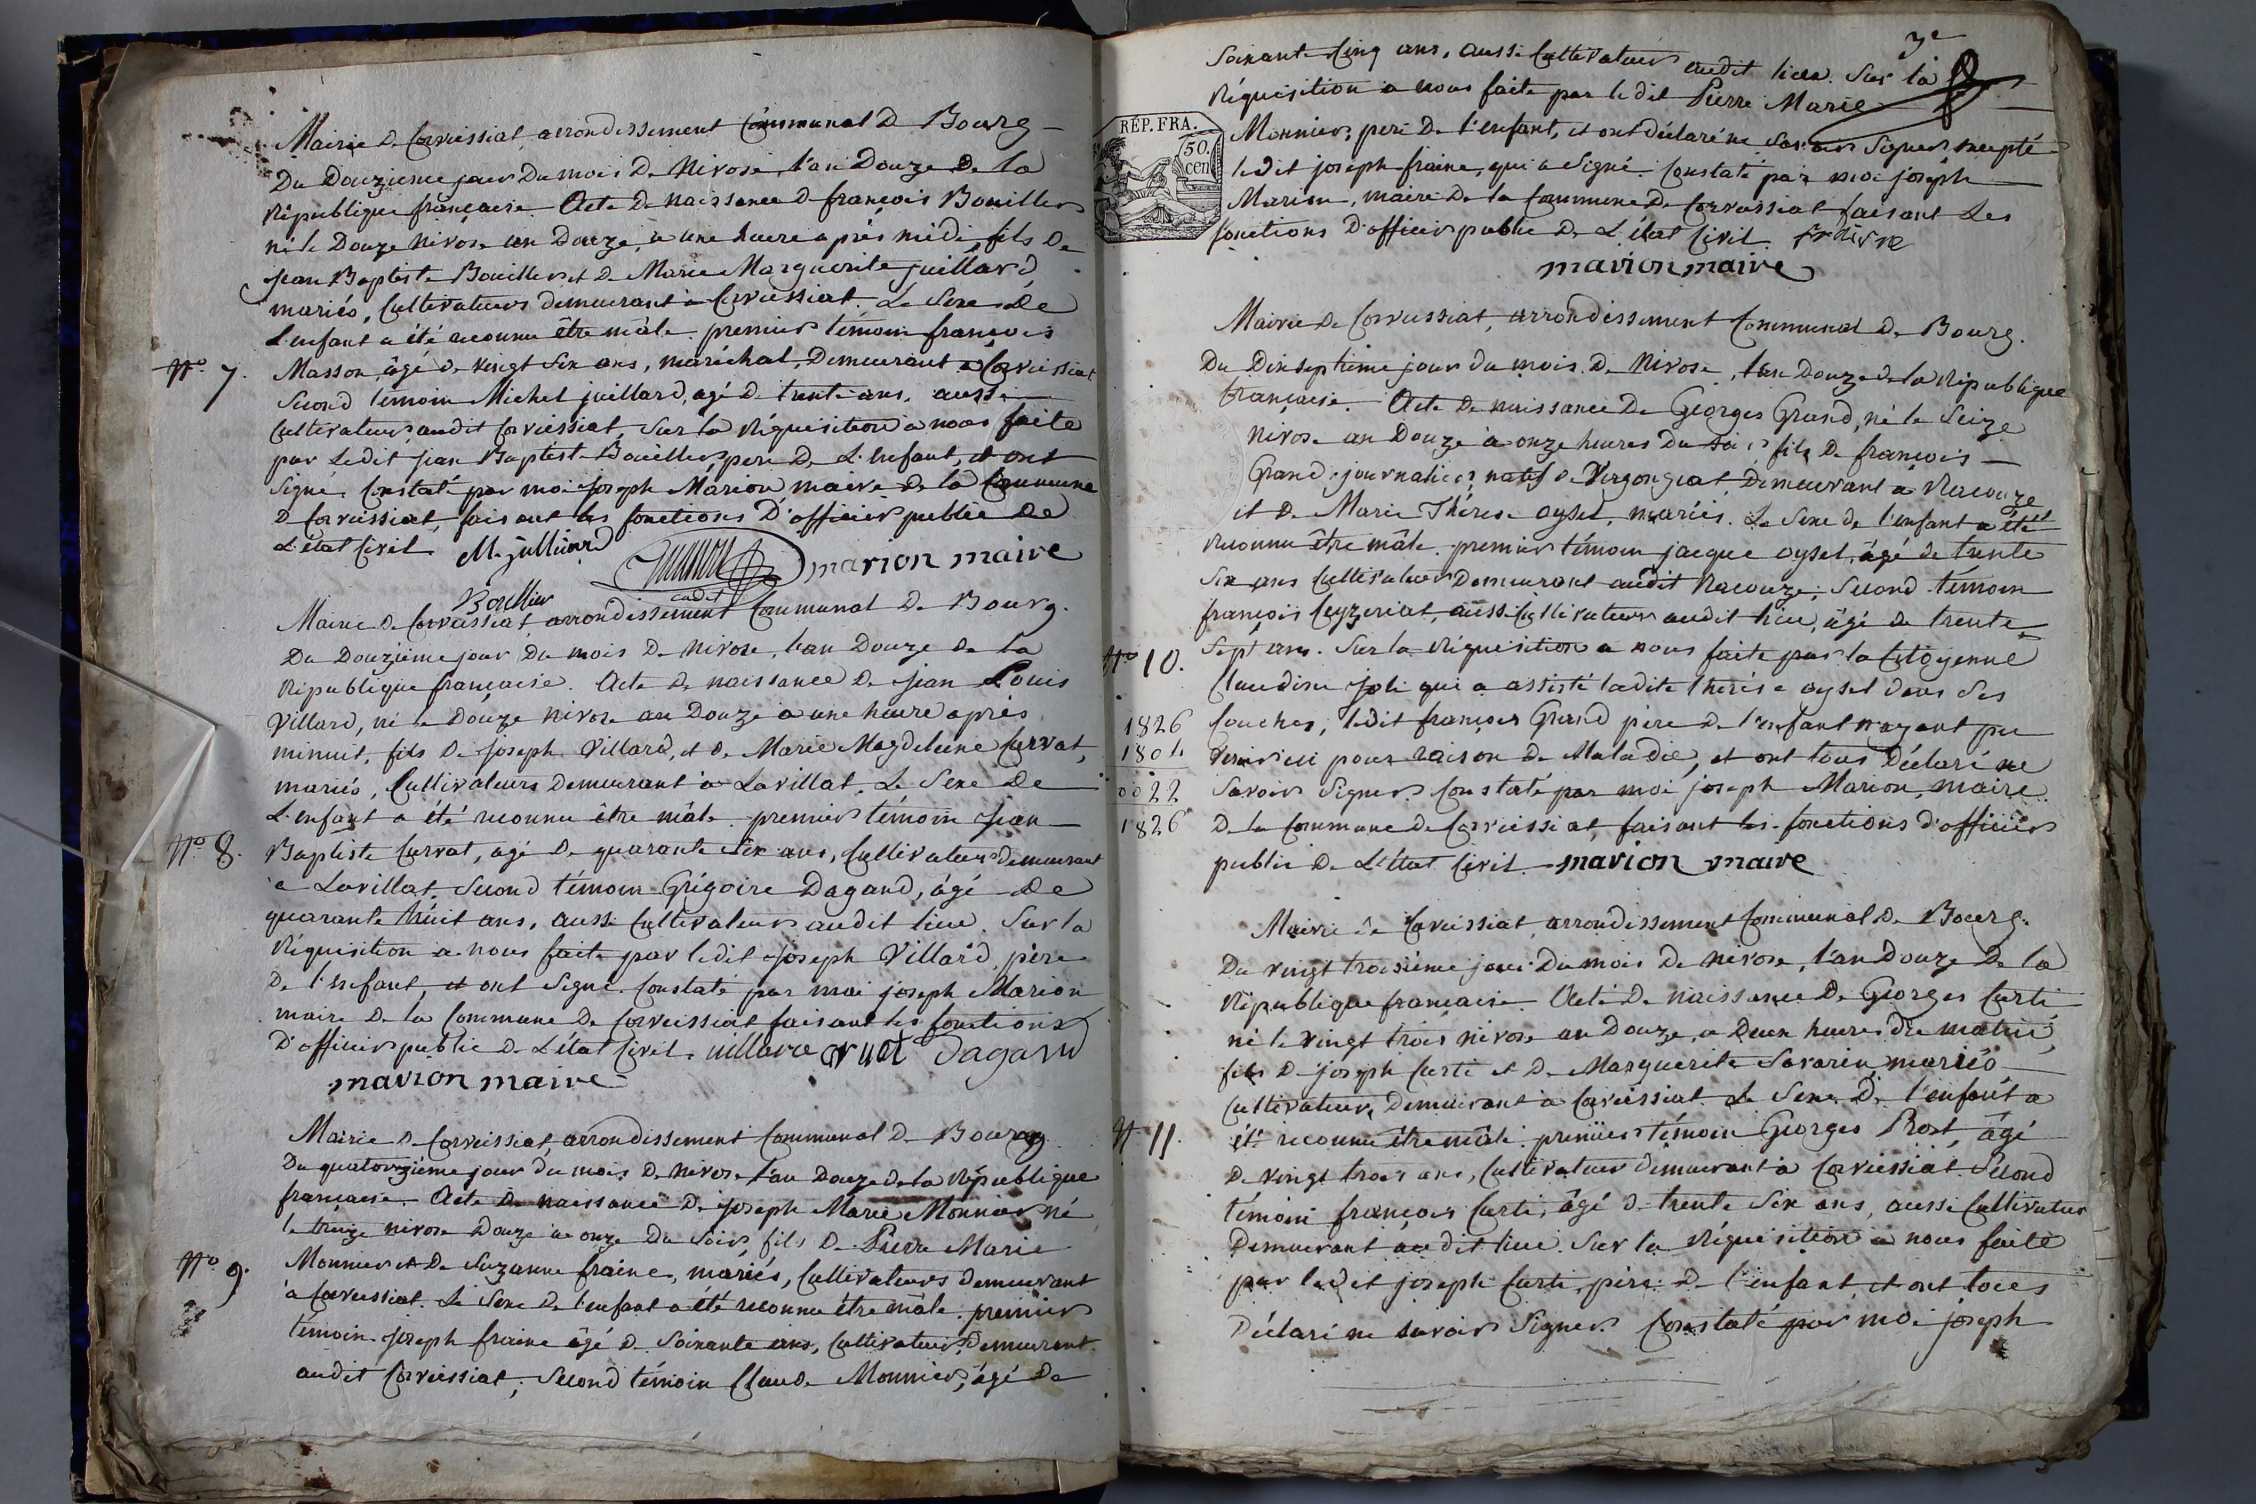 Mairie De Corveissiat, arrondissement Communal De Bourg
Du Douzieme jour Du mois De Nivose, l'an Douze De la
République française. Acte De naissance De françois Bouiller
né le Douze Nivose an Douze, a une heure après midi fils De
jean Baptiste Bouiller, et De Marie Marguerite juillard
mariés, Cultivateurs demeurant à Corveissiat. Le Sexe De
L'enfant a été reconnu être mâle. premier témoin françois
N° 7. Masson, âgé De vingt Six ans, maréchal, Demeurant à Corveissiat
Second témoin Michel juillard, agé De trente ans, aussi
Cultivateur, audit Corveissiat, Sur la Réquisition à nous faite
par ledit jean Baptiste Bouiller, pere De L'enfant, et ont
signé. Constaté par moi joseph Marion maire De la Commune
De Corveissiat faisant les fonctions D'officier public De
L'état Civil. M. jullliard
marion maire
cadet
Boullier
Mairie De Corveissiat, arrondissement Communal De Bourg.
Du Douzième jour Du mois De Nivose, l'an Douze De la
République française. Acte De naissance De jean Louis
Villard, né le Douze Nivose an Douze à une heure après
minuit, fils De joseph Villard, et De Marie Magdeleine Curvat,
mariés, Cultivateurs Demeurant à Lavillat. Le Sexe De
L'enfant a été reconnu être mâle. premier témoin jean
N° 8. Baptiste Curvat, agé De quarante Six ans, Cultivateur Demeurant
a Lavillat, Second témoin Grégoire Dagand, âgé De
quarante huit ans, aussi Cultivateur audit lieu. Sur la
Réquisition a nous faite par ledit joseph Villard, père
De l'Enfant, et ont Signé. Constaté par moi joseph Marion
maire De la Commune De Corveissiat faisant les fonctions
D'officier public De L'état Civil. Dagand
marion maire
Mairie De Corveissiat, arrondissement Communal De Bourg
Du quatorzième jour du mois De nivose l'an Douze De la République
française. Acte De naissance De joseph Marie Monnier né
le treize nivose Douze a onze Du Soir, fils De Pierre Marie
N° 9. Monnier et De Suzanne fraine, mariés, Cultivateurs demeurant
à Corveissiat. Le Sexe De l'enfant a été reconnu être mâle. premier
témoin joseph fraine âgé De Soixante ans, Cultivateur, Demeurant
audit Corveissiat; Second témoin Claude Monnier, âgé De
3e
Soixante Cinq ans, aussi Cultivateur audit lieu. Sur la
Réquisition a nous faite par ledit Pierre Marie
RÉP. FRA.
50.
cen
Monnier, pere De l'enfant, et ont déclaré ne Savoir Signer excepté
ledit joseph fraine, qui a Signé. Constaté par moi joseph
Marion, maire De la Commune De Corveissiat faisant Les
fonctions D'officier public De L'état Civil.
marion maire
Mairie De Corveissiat, arrondissement Communal De Bourg.
Du Dix septième jour du mois De Nivose, l'an Douze De la République
française. Acte De naissance De Georges Grand, né le Seize
Nivose an Douze à onze heures Du soir, fils De françois
Grand, journalier, natif De Vergongeat, Demeurant à Racouze
et De Marie Thérèse oysel, mariés. Le Sexe de l'enfant a été
reconnu être mâle. premier témoin jacque oysel, âgé de trente
Six ans Cultivateur Demeurant audit Racouze; Second témoin
françois Ceyzeriat, aussi Cultivateur audit lieu, âgé de trente
N° 10. Sept ans. Sur la Réquisition a nous faite par la Citoyenne
Claudine Joli qui a assisté ladite thérèse oysel dans Ses
1826 Couches, ledit françois Grand père De l'enfant n'ayant pu
1804 venir ici pour raison De Maladie, et ont tous Déclaré ne
0022 Savoir Signer. Constaté par moi joseph Marion, maire
1826 De la Commune De Corveissiat, faisant les fonctions d'officier
public De L'état Civil. marion maire
Mairie De Corveissiat, arrondissement Communal De Bourg.
Du vingt troisième jour Du mois De nivose, l'an Douze De la
République française. Acte De naissance De Georges Curti
né le vingt trois nivose an Douze, a Deux heures du matin,
fils De joseph Curti et De Marguerite Savarin, mariés
Cultivateurs, Demeurant a Corveissiat. Le Sexe De l'enfant a
N° 11. été reconnu être mâle. premier témoin Georges Prost, âgé
De vingt trois ans, Cultivateur demeurant à Corveissiat Second
témoin françois Curti, âgé de trente Six ans, aussi Cultivateur
Demeurant audit lieu. Sur la Réquisition à nous faite
par ledit joseph Curti, père De l'enfant, et ont tous
Déclaré ne savoir Signer. Constaté par moi joseph